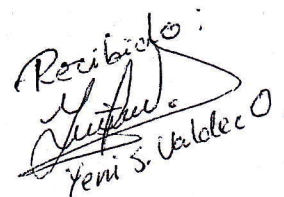 Recibido:
Yeni S. Valdez O